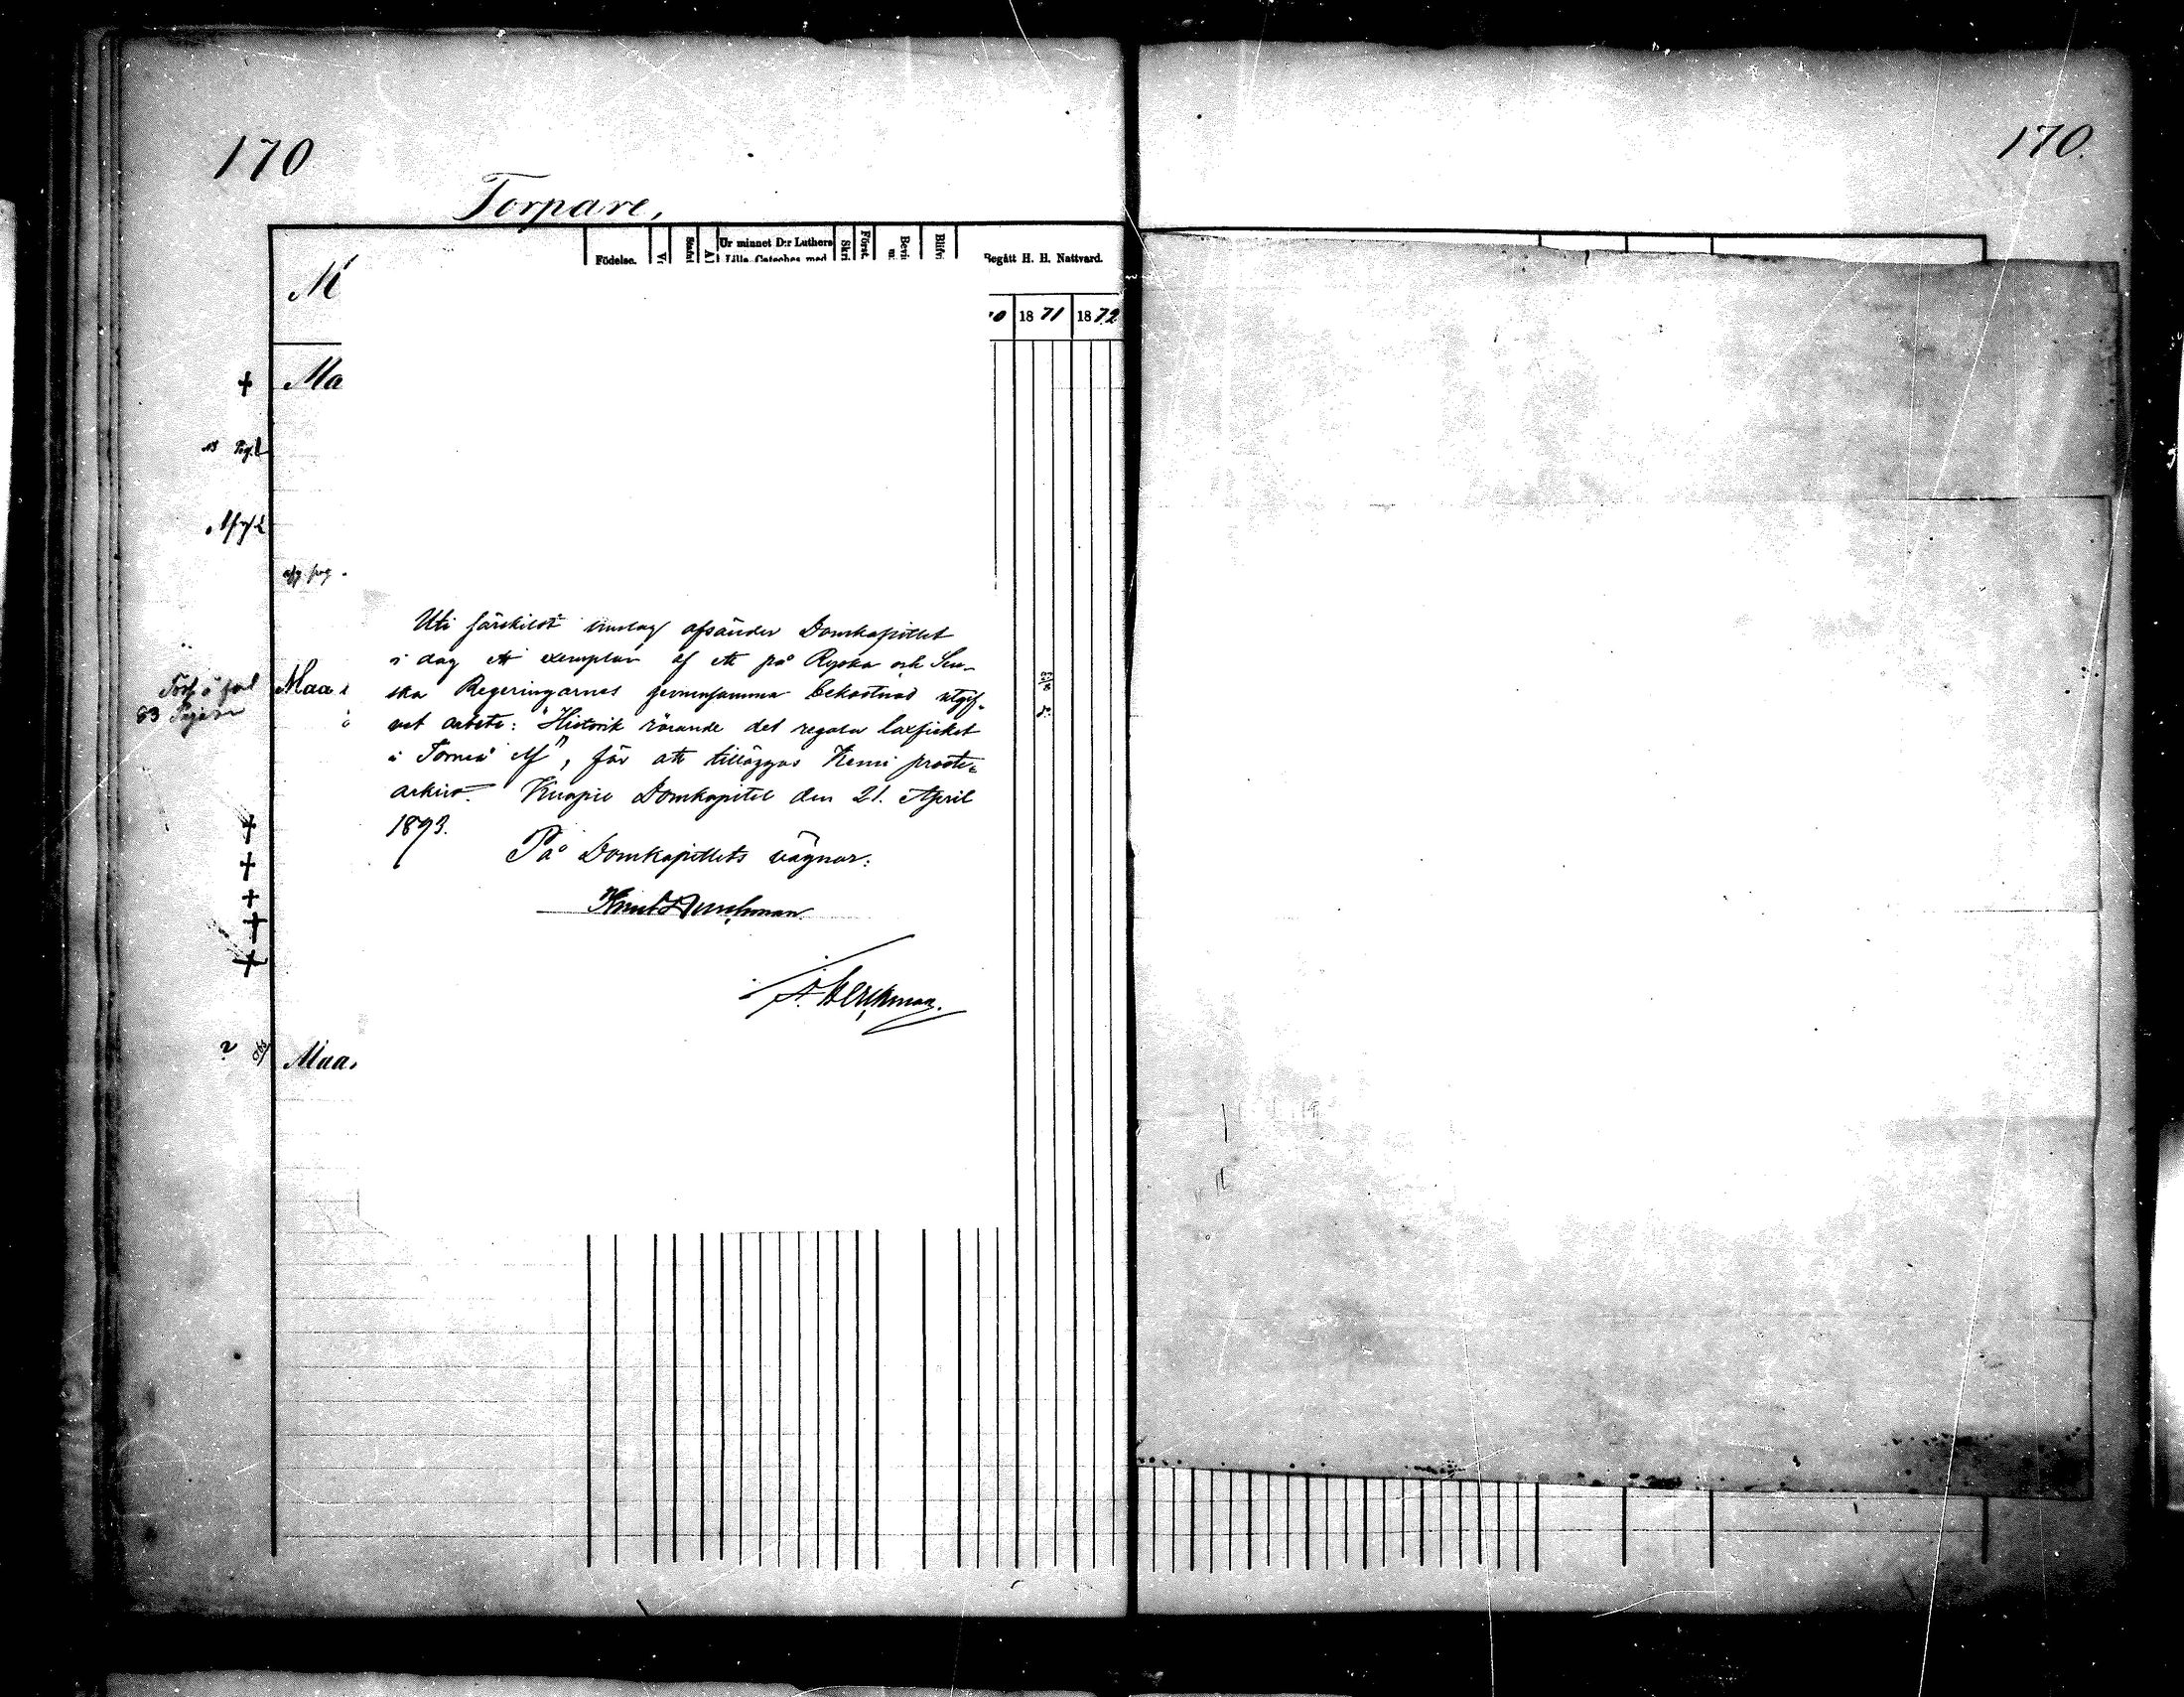 170
170.
Torpare,
Födelse.
Ur minnet D:r Luthers
Lilla Cateches med
Skri
Först.
Bevi
Begått H. H. Nattvard.
M
18 71
18 72
+
Ma
Maa
Uti särskildt omslag afsänder Domkapitlet
i dag ett exemplar af ett på Ryska och Sven-
ska Regeringarnes gemensamma bekostnad utgif-
vet arbete: "Historik rörande det regala laxfisket
i Torneå elf", för att tilläggas Kemi prosteri-
arkiv. Kuopio Domkapitel den 21. April
1893.
På Domkapitlets vägnar:
+
+
+
+
+
?
Obs
Maa